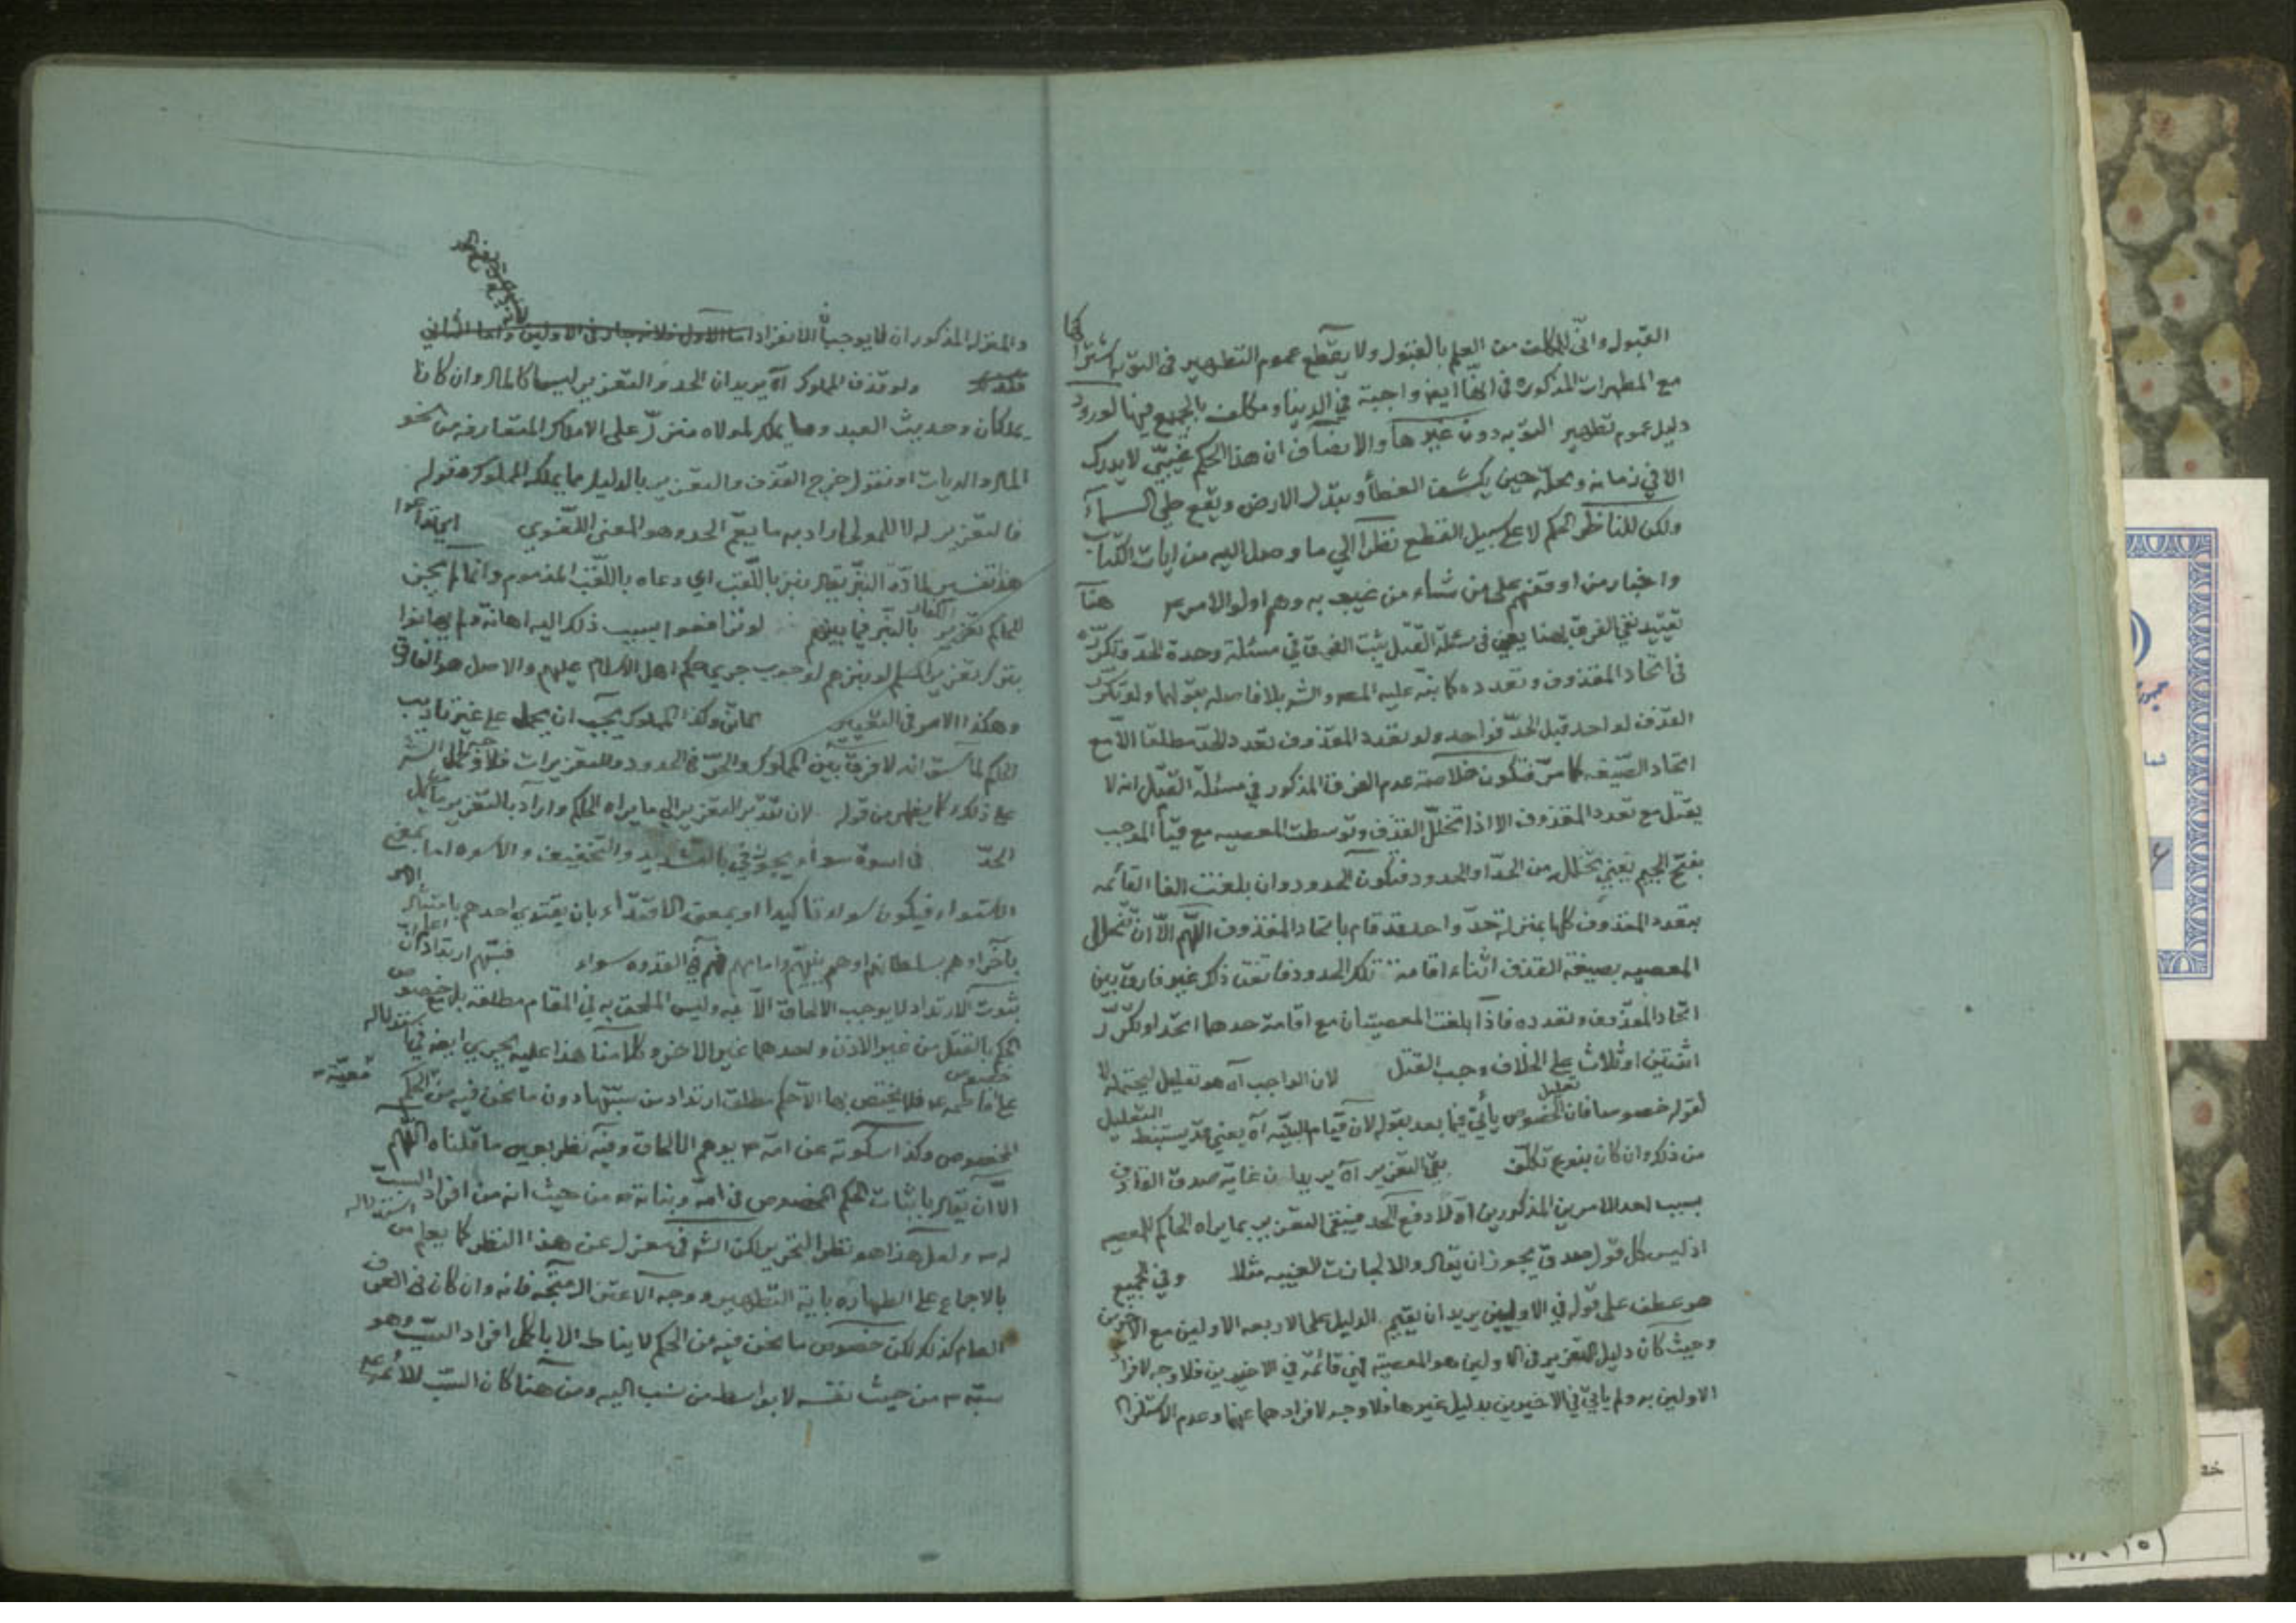 القبول وانّى للمكلف من العلم بالقبول ولا يقطع عموم التطهير في التوبه اشتراكها
مع المطهرات المذكوره في انّها ايض واجبة في الدنيا ومكلف بالجميع فيها لورود
دليل عموم تطهير التوبه دون غيرها والانصاف ان هذا الحكم غيبيّ لا يدرك
الا في زمانه ومحلّه حين يكشف الغطأ ويبدّل الارض ويقع طي السمآء
ولكن للناظر الحكم لا على سبيل القطع نظرا الي ما وصل اليه من ايات الكتاب
واخبار من اوقفهم على من شاء من غيبه وهم اولو الامر هنآ
تقييد نفي الفرق بهنا يعني في مسئلة القتل يثبت الفرق في مسئلة وحدة الحدّ وتكرّره
في اتحاد المقذوف وتعدده كما نبّه عليه المص والش بلا فاصله بقولهما ولو تكرّر
القذف لواحد قبل الحدّ فواحد ولو تعدد المقذوف تعدد الحدّ مطلقا الاّ مع
اتحاد الصّيغه كما مرّ فتكون خلاصة عدم الفرق المذكور في مسئلة القتل انه لا
يقتل مع تعدد المقذوف الا اذا تخلّل القذف وتوسطت المعصيه مع الموجب
بفتح الجيم يعني تخلل من الحدّ او الحدود فتكون الحدود وان بلغت الفا القائمه
بتعدد المقذوف كلها بمنزلة حدّ واحد قد قام باتحاد المقذوف اللّهم الاّ ان تخلل
المعصيه بصيغة القذف اثناء اقامة تلك الحدود فاتفق ذكر غير فارق بين
اتحاد المقذوف وتعدده فاذا بلغت المعصيتان مع اقامة حدهما اتحد او تكرّر
اثنتين او ثلاث على الخلاف وجب القتل لان الواجب آه هو تعليل
لقوله خصوصا فان تعليل الخصوص يأتي فيما بعد بقوله لان قيام البيّنه آه يعني قد يستنبط التعليل
من ذكر وان كان بنوع تكلّف بقي التعزير آه يريد ان غاية صدق القاذف
بسبب احد الامرين المذكورين اوّلا دفع الحد فيبقى التعزير بما يراه الحاكم للمعصيه
اذ ليس كل قول صدق يجوز ان يقال والا لجازت الغيبه مثلا وفي الجميع
هو عطف على قوله في الاوليين يريد ان يقيم الدليل على الاربعه الاولين مع الاخرين
وحيث كان دليل التعزير في الاولين هو المعصيه فهي قائمة في الاخيرين فلا وجه لافراد
الاولين به ولم يأتي في الاخيرين بدليل غيرها فلا وجه لافرادهما عنهما وعدم الاستلزام
والمنزله المذكوران لا يوجبا الانفراد اما الاول فلانه جار في الاولين واما الثاني
ولو قذف المملوك آه يريد ان الحد والتعزير ليسا كالمال وان كانا
يملكان وحديث العبد وما يملك لمولاه منزّل على الاملاك المتعارفه من نحو
المال والديات او نقول خرج القذف والتعزير بالدليل مما يملكه المملوك وقوله
فالتعزير له لا للمولى اراد به ما يعمّ الحد وهو المعنى اللغوي
هذا تفسير لمادّة النبز يقال نبز باللّقب اي دعاه باللقب المذموم وانما لم يجز
للحاكم تعزير الكفار بالنبز فيما بينهم لو ترافعوا بسبب ذلك اليه اهانة ولم يهانوا
بترك تعزير المسلم لو نبزهم لوجوب جري حكم اهل الاسلام عليهم والاصل هو الفارق
وهكذا الامر في التعيير وكذا المملوك يجب ان يحمل على غير تاديب
الحاكم لما سبق انه لا فرق بين المملوك والحرّ في الحدود والتعزيرات
على ذلك كما يظهر من قوله لان تقدير التعزير الي ما يراه الحاكم واراد بالتعزير
الحدّ في اسوة سواء يجوز في بالتشديد والتخفيف والاسوه اما بمعنى
الاستواء فيكون سواء تاكيدا او بمعنى الاقتدآء بان يقتدي احدهم بامتثال الامر
بآخر او هم بسلطانهم او هم بنبيّهم وامامهم فهم في القدوه سواء فسبّهم ارتداد اعلم ان
ثبوت الارتداد لا يوجب الالحاق الاّ فيه وليس الملحق به في المقام مطلقه بل مع خصوص
الحكم بالقتل من غير الاذن واحدهما غير الاخر وكلامنا هذا عليه يجري ايض في استدلاله
على فاطمه ع فلا يختص بها الاّ حكم مطلق ارتداد من سبّها دون ما نحن فيه من الحكم
المخصوص وكذا سكوته عن امه ص يوهم الالحاق وفيه نظر بعين ما قلناه اللّهم
الاّ ان يقال باثبات الحكم المخصوص في امه وبناته ص من حيث انه من افراد السبّ
له ص ولعل هذا هو نظر التحرير لكن الش في معزل عن هذا النظر كما يعلم من استدلاله
بالاجماع على الطهاره باية التطهير ووجه الاعتراض متّجه فانه وان كان في العرف
العام كذلك لكن خصوص ما نحن فيه من الحكم لا يناط الا باكمل افراد السّب وهو
سبّه ص من حيث نفسه لا بواسطه من نسب اليه ومن هنا كان السبّ للائمه ع